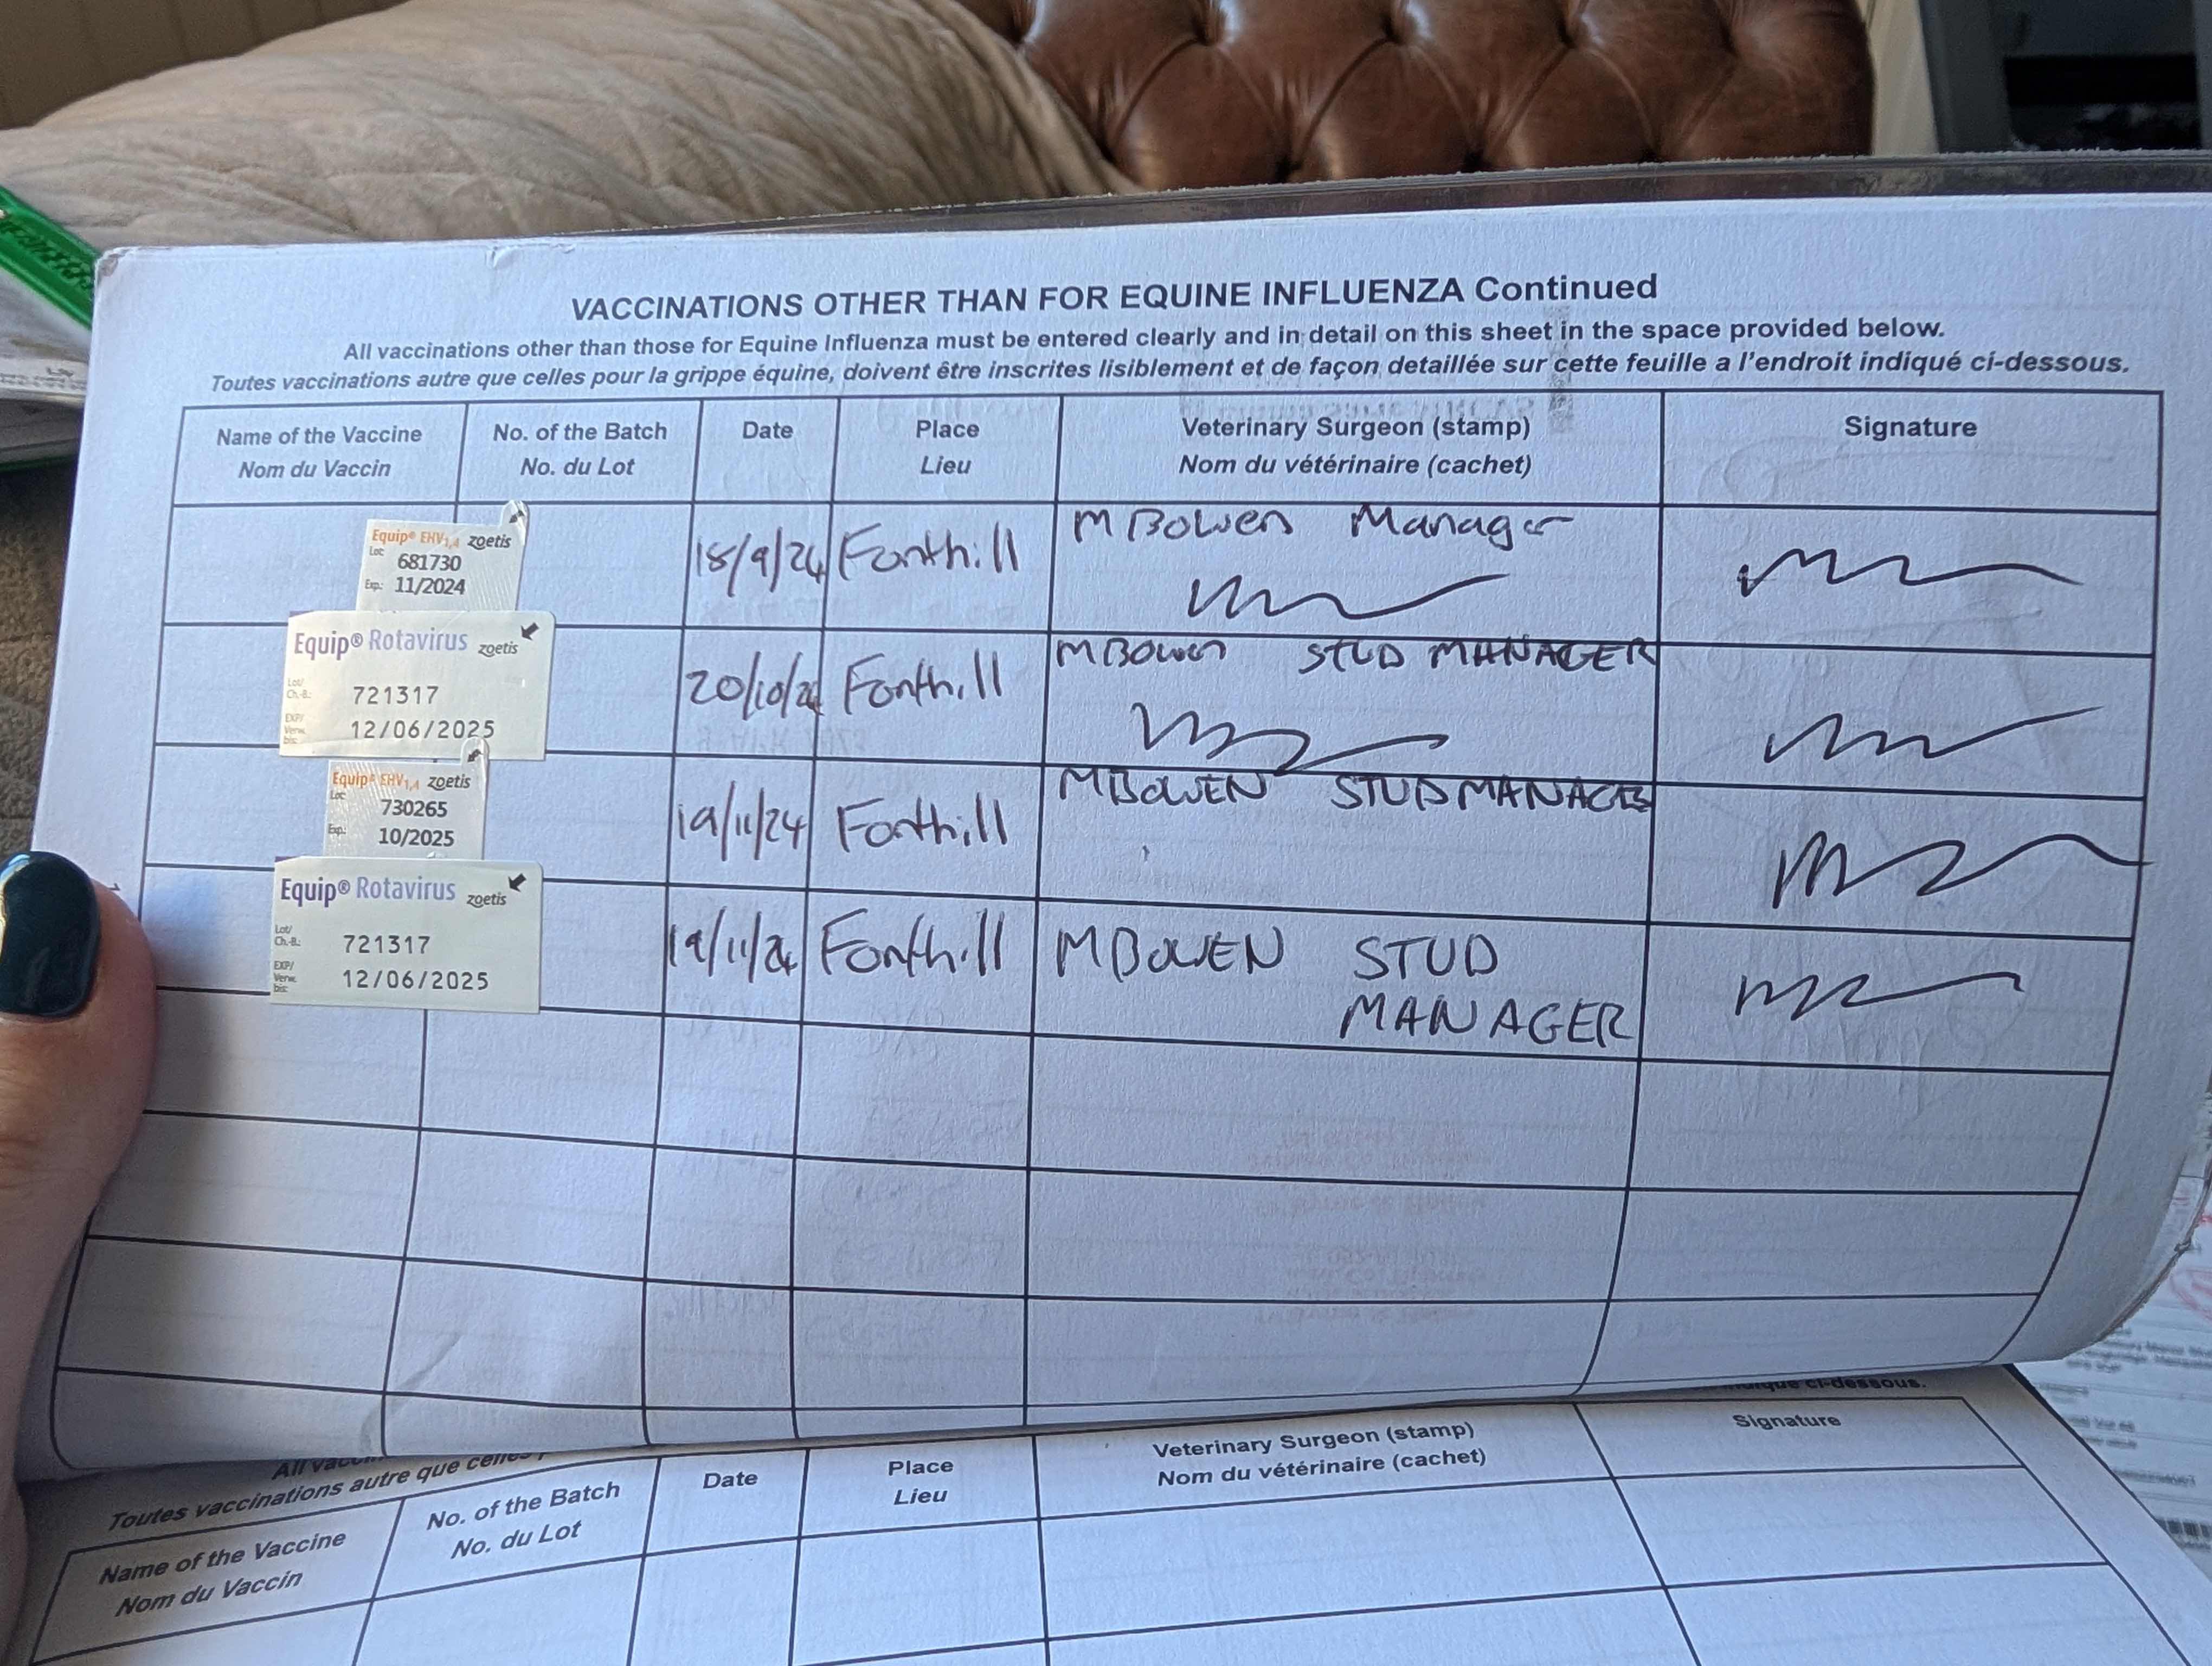 VACCINATIONS OTHER THAN FOR EQUINE INFLUENZA Continued
All vaccinations other than those for Equine Influenza must be entered clearly and in detail on this sheet in the space provided below.
Toutes vaccinations autre que celles pour la grippe équine, doivent être inscrites lisiblement et de façon detaillée sur cette feuille a l'endroit indiqué ci-dessous.
Name of the Vaccine No. of the Batch Date Place Veterinary Surgeon (stamp) Signature
Nom du Vaccin No. du Lot Lieu Nom du vétérinaire (cachet)
Equip® EHV1,4 zoetis
Lot: 681730
Exp.: 11/2024
18/9/24 Fonthill M Bowen Manager
Equip® Rotavirus zoetis
Lot/
Ch.-B.: 721317
EXP/
Verw.
bis: 12/06/2025
20/10/24 Fonthill M Bowen STUD MANAGER
Equip® EHV1,4 zoetis
Lot: 730265
Exp.: 10/2025
19/11/24 Fonthill M BOWEN STUD MANAGER
Equip® Rotavirus zoetis
Lot/
Ch.-B.: 721317
EXP/
Verw.
bis: 12/06/2025
19/11/24 Fonthill M BOWEN STUD
MANAGER
ci-dessous.
Toutes vaccinations autre que celles
Name of the Vaccine No. of the Batch Date Place Veterinary Surgeon (stamp) Signature
Nom du Vaccin No. du Lot Lieu Nom du vétérinaire (cachet)